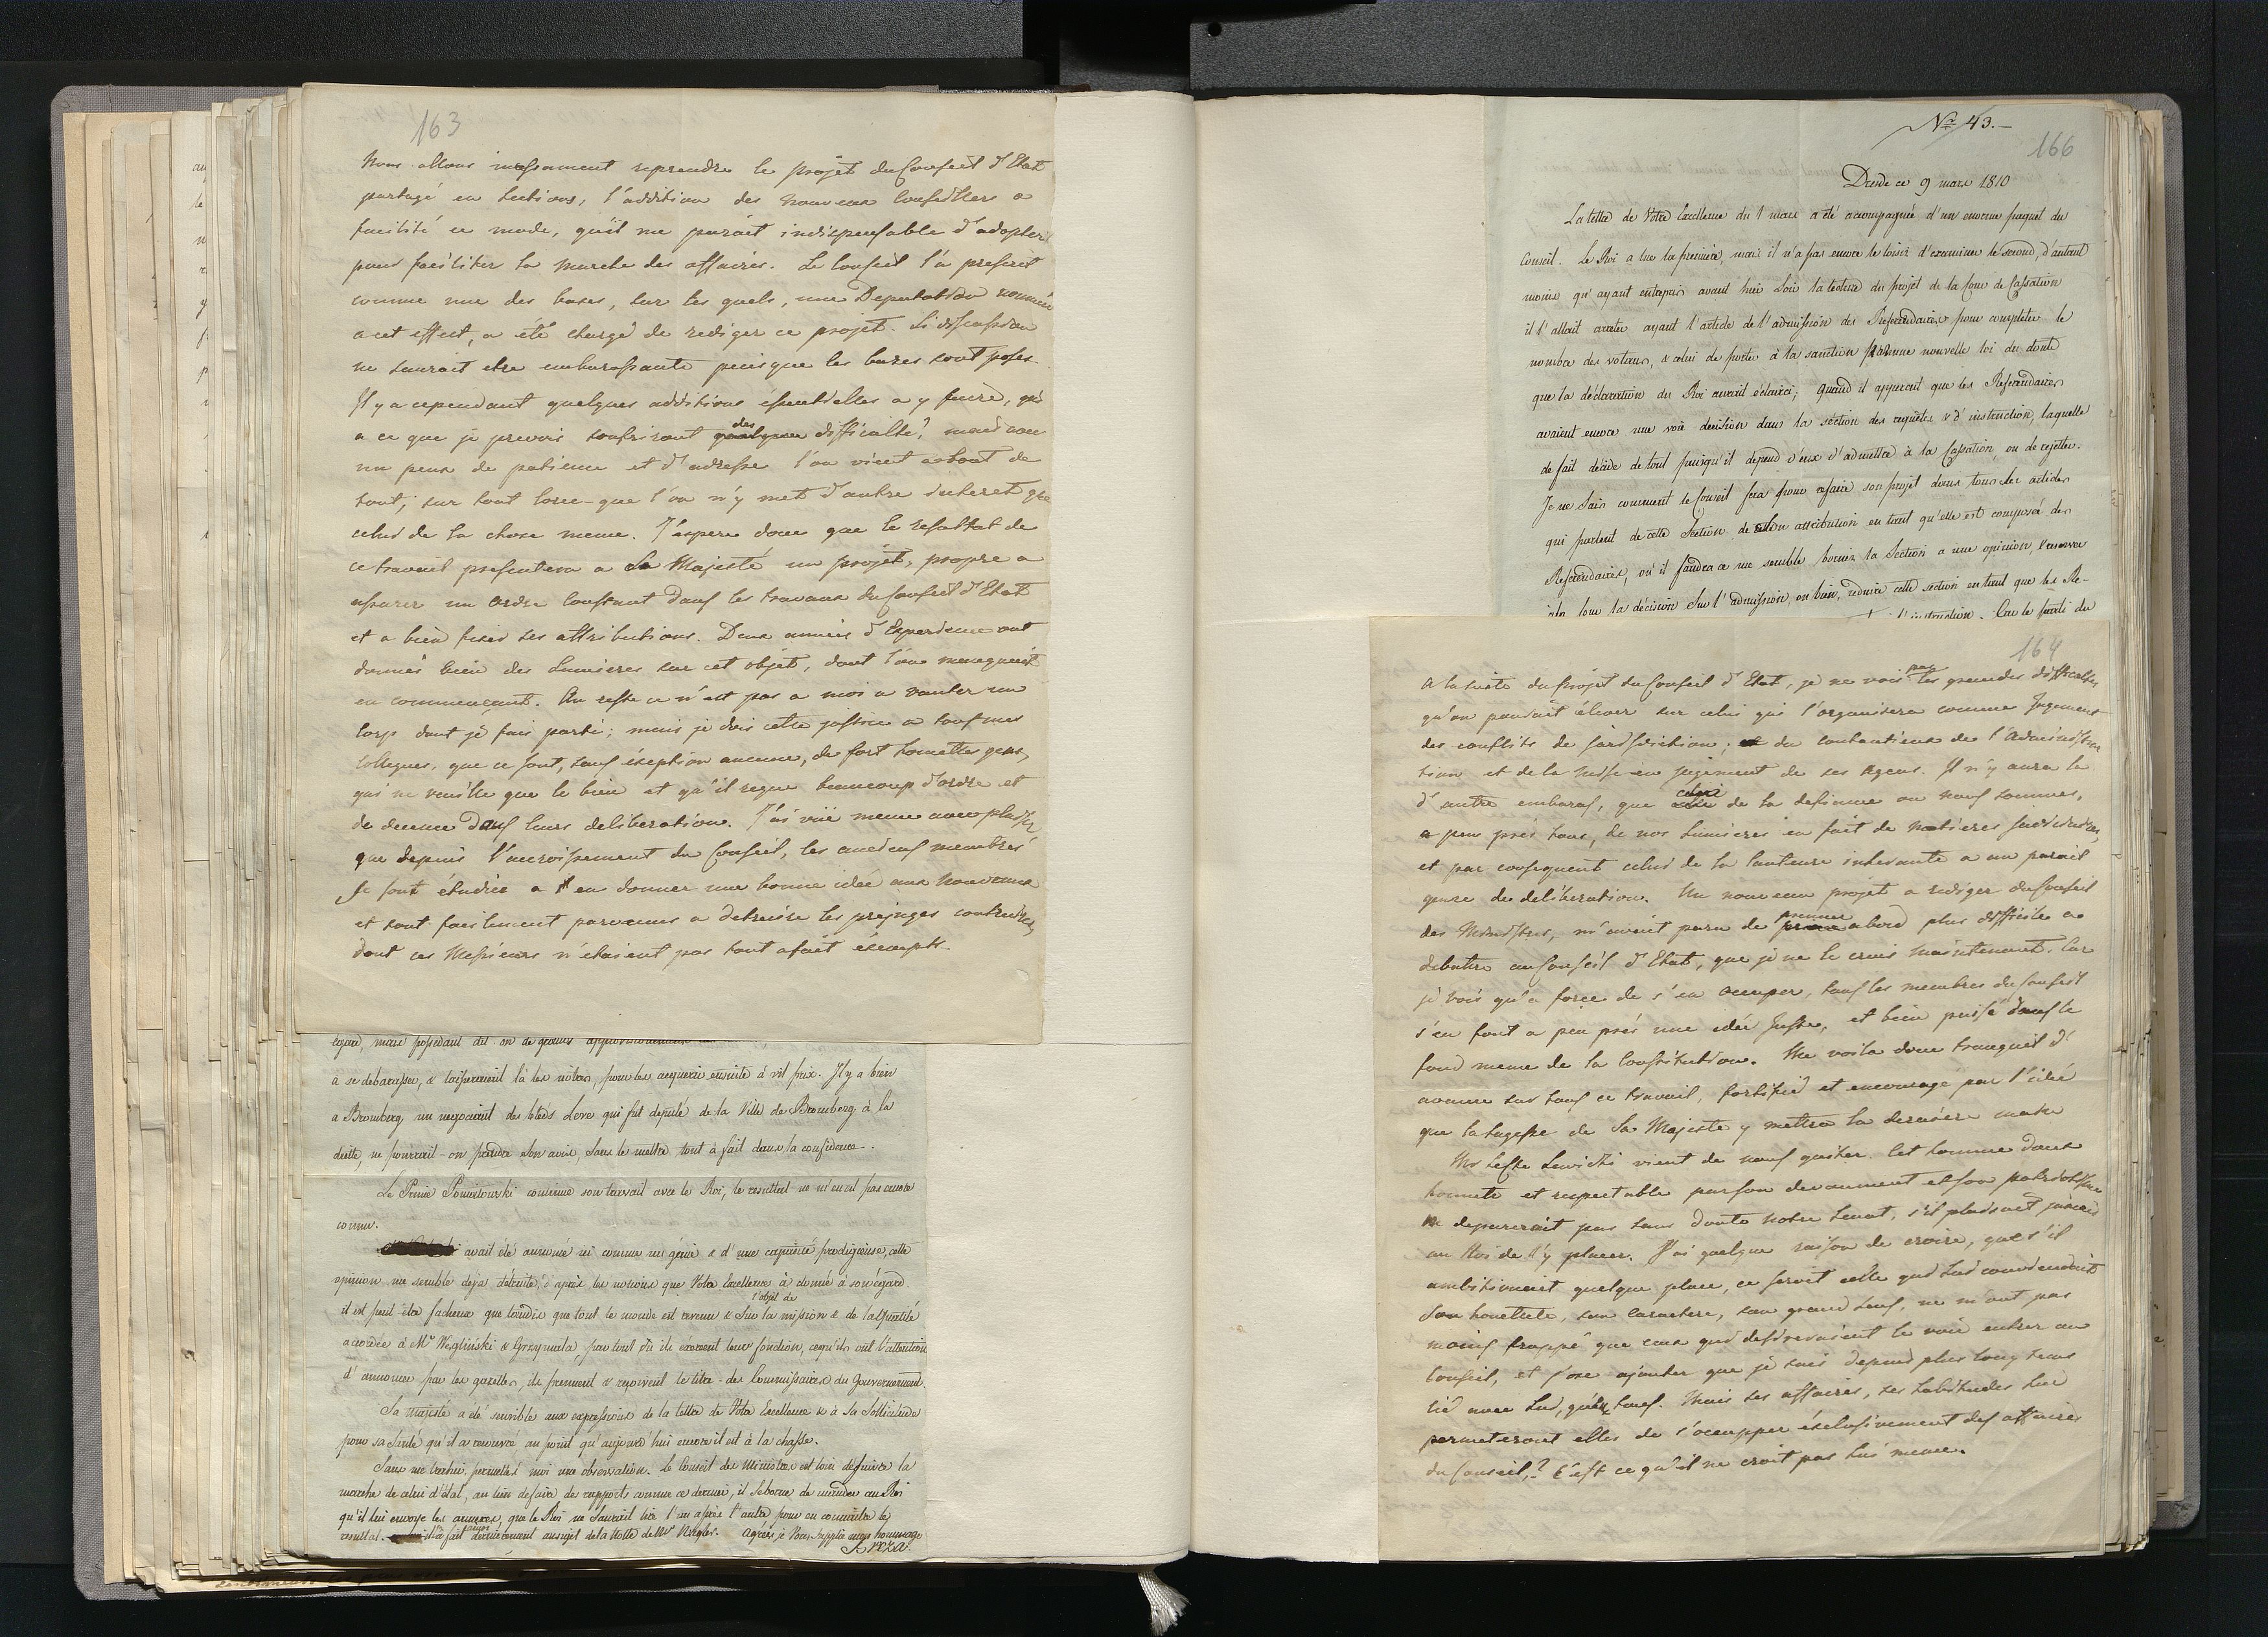 163
Nous allons incessament reprendre le projet du Conseil d'Etat
partagé en sections, l'addition des nouveaux Conseillers a
facilité ce mode, qu'il me parait indispensable d'adopter
pour faciliter la marche des affaires. Le Conseil l'a present
comme une des bases, sur les quels, une Deputation nommée
a cet effect, a été chargé de rediger ce projet. La discussion
ne sauroit etre embarassante puisque les bases sont posés.
Il y a cependant quelques additions essentielles a y faire, qui
a ce que je prevois soufriront des difficultés, mais avec
un peux de patience et d'adresse l'on vient about de
tout; sur tout lorsque l'on n'y met d'autre interet que
celui de la chose meme. J'espere donc que le resultat de
ce travail presentera a Sa Majesté un projet, propre a
assurer un ordre constant dans les travaux du Conseil d'Etat
et a bien fixer ses attributions. Deux années d'Experience ont
donnés bien des lumieres sur cet objet, dont l'on manquait
en commençant. Au reste ce n'est pas a moi a vanter un
Corps dont je fais parti; mais je dois cette justice a tous mes
Collegues, que ce sont, sans éxeption aucune, de fort honettes gens,
qui ne veuille que le bien et qu'il regne beaucoup d'ordre et
de decence dans leurs deliberations. J'ai vüe meme avec plaisir
que depuis l'accroissement du Conseil, les anciens membres
se sont étudiée a en donner une bonne idée aux nouveaux
et sont facilement parvenus a detruire les prejuges contraires,
dont ces Messieurs n'étaient pas tout afait éxempts.
égard, mais possedant dit-on de grands approvisionnemens
à se debarasser, & laisseroient là les nôtres, pour les acquerir ensuite à vil prix. Il y a bien
a Bromberg un negociant des bleds Leve qui fut deputé de la Ville de Bromberg à la
diette, ne pourrait-on prendre son avis, sans le mettre tout à fait dans la confidence.
Le Prince Poniatowski continue son travail avec le Roi, le resultat ne m'en est pas encore
connu.
avait été annoncé ici comme un génie & d'une capacité prodigieuse, cette
opinion me semble déja détruite, d'après les notions que Votre Excellence a donné à son égard.
il est peut-être facheux que tandis que tout le monde est revenu & sur l'objet de la mission & de la qualité
accordée à Mr Wegliński & Grzymala, partout où ils éxercent leur fonction, ce qu'ils ont l'attention
d'annoncer par les gazettes, ils prennent & reçoivent le titre des Commissaires du Gouvernement.
Sa Majesté a été sensible aux expressions de la lettre de Votre Excellence & à Sa Sollicitude
pour sa santé qu'il a recouvré au point qu'aujourd'hui encore il est à la chasse.
Sans me trahir, permettés moi une observation. Le Conseil des Ministres est loin de suivre la
marche de celui d'état, au lieu de faire de rapports comme ce dernier, il se borne de mander au Roi
qu'il lui envoye les annexes, que le Roi ne sauroit lire l'un après l'autre pour en connaitre le
resultat. il l'a fait aussi dernierement au sujet de la Note de Mr Agréés je Vous supplie mon hommage
Breza.
Nr 43.
166
Dresde ce 9 mars 1810
La lettre de Votre Excellence du 1 mars a été accompagnée d'un enorme paquet du
Conseil. Le Roi a lue la premiere, mais il n'a pas encore le loisir d'examiner le second, d'autant
moins qu'ayant entrepris avant hier soir la lecture du projet de la Cour de Cassation
il l'allait arreter ayant l'article de l'admission des Referendaires pour completer le
nombre des votans, & celui de porter à la sanction par une nouvelle loi du doute
que la déclaration du Roi auroit éclairci; quand il apperçut que les Referendaires
avaient encore une voix decisive dans la section des requêtes & d'instruction, laquelle
de fait décide de tout puisqu'il depend d'eux d'admettre à la Cassation, ou de rejetter.
Je ne sais comment le Conseil fera pour refaire son projet dans tous les articles
qui parlent de cette Section de son attribution en tant qu'elle est composée des
Referendaires, ou il faudra ce me semble borner la Section a une opinion, & reserver
à la Cour la décision sur l'admission, ou bien, reduire cette section en tant que les Re-
l'instruction. Car le parti du
164
A la suite du projet du Conseil d'Etat, je ne vois pas les grandes difficultés
qu'on pouroit élever sur celui qui l'organisera comme Jugement
des conflits de jurisdiction; du contentieux de l'Administra
tion et de la mise en jugement de ses Agens. Il n'y aura la
d'autre embaras, que celui de la defiance ou nous sommes,
a peu prés tous, de nos lumieres en fait de matieres judiciaires,
et par consequent celui de la lenteur inherente a un pareil
genre de deliberation. Un nouveau projet a rediger du Conseil
des Ministres, m'avoit paru de premier abord plus difficile a
debattre au Conseil d'Etat, que je ne le crois maintenant. Car
je vois qu'a force de s'en occuper, tous les membres du Conseil
s'en font a peu prés une idée juste, et bien puisé dans le
fond meme de la Constitution. Me voila donc tranquil d'
avance sur tous ce travail, fortifié et encouragé par l'idée
que la sagesse de Sa Majeste y mettra la derniére main
Mr Lewicki vient de nous quiter. Cet homme
honnete et respectable par son devouement et son patriotisme
ne depareroit pas sans doute notre Senat, s'il plaisoit jamais
au Roi de l'y placer. J'ai quelque raison de croire, que s'il
ambitionoit quelque place, ce seroit celle qui lui conviendroit
Son honettete, son caractere, son grand sens, ne m'ont pas
moins frappé que ceux qui desireroient le voir entrer au
Conseil, et j'ose ajouter que je suis depuis plus long tems
lié avec lui, qu'eux tous. Mais ses affaires, ses habitudes lui
permeteront elles de s'occupper éxclusivement des affaires
du Conseil? C'est ce qu'il ne croit pas lui meme.